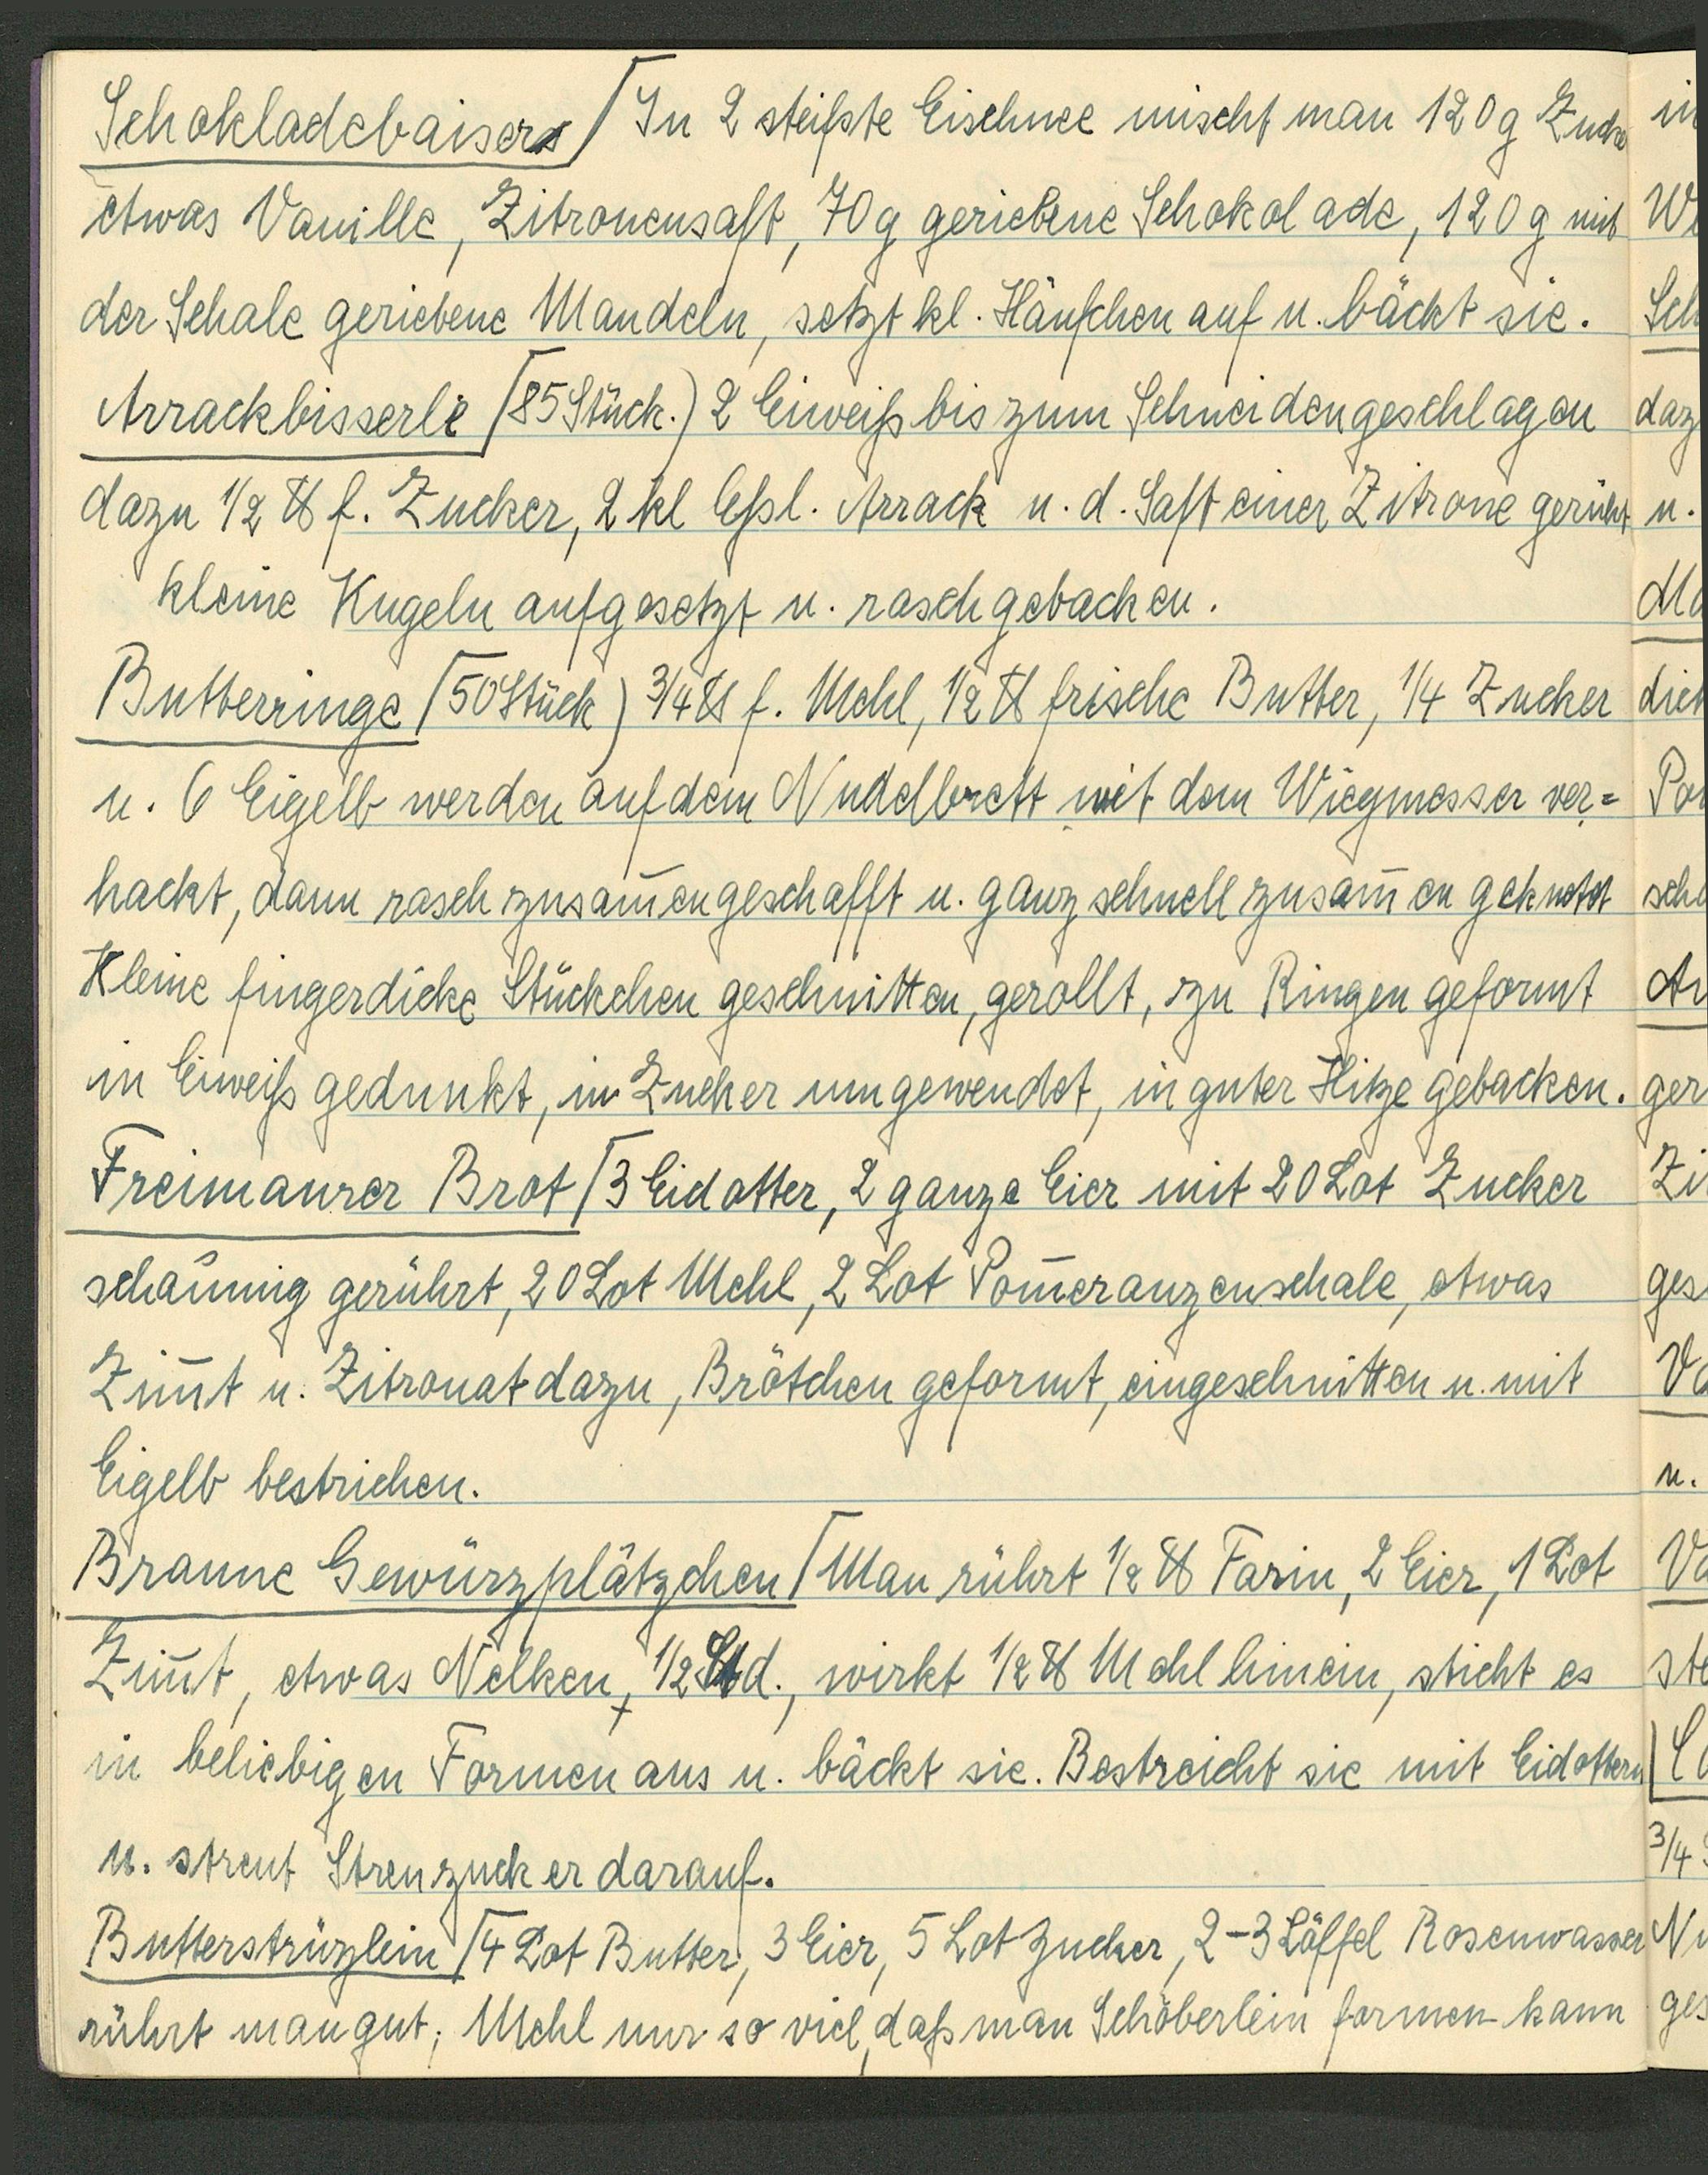 Schokladebaisers / In 2 steifste Eischnee mischt man 120g Zucker
etwas Vanille, Zitronensaft, 70g geriebene Schokolade, 120g mit
der Schale geriebene Mandeln, setzt kl. Häufchen auf u. bäckt sie.
Arrackbisserle (85 Stück.) 2 Eiweiß bis zum Schneiden geschlagen
dazu 1/2 ℔ f. Zucker, 2 kl Eßl. Arrack u. d. Saft einer Zitrone gerührt
kleine Kugeln aufgesetzt u. rasch gebacken.
Butterringe (50 Stück) 3/4 ℔ f. Mehl, 1/2 ℔ frische Butter, 1/4 Zucker
u. 6 Eigelb werden auf dem Nudelbrett mit dem Wiegmesser ver=
hackt, dann rasch zusam̄engeschafft u. ganz schnell zusam̄en geknetet
Kleine fingerdicke Stückchen geschnitten, gerollt, zu Ringen geformt
in Eiweiß gedunkt, in Zucker umgewendet, in guter Hitze gebacken.
Freimaurer Brot / 3 Eidotter, 2 ganze Eier mit 20 Lot Zucker
schaumig gerührt, 20 Lot Mehl, 2 Lot Pom̄eranzenschale, etwas
Zim̄t u. Zitronat dazu, Brötchen geformt, eingeschnitten u. mit
Eigelb bestrichen.
Braune Gewürzplätzchen / Man rührt 1/2 ℔ Farin, 2 Eier, 1 Lot
Zim̄t, etwas Nelken, 1/2 Std., wirkt 1/2 ℔ Mehl hinein, sticht es
in beliebigen Formen aus u. bäckt sie. Bestreicht sie mit Eidottern
u. streut Streuzucker darauf.
Butterstrüzlein / 4 Lot Butter, 3 Eier, 5 Lot Zucker, 2-3 Löffel Rosenwasser
rührt man gut; Mehl nur so viel, daß man Schöberlein formen kann